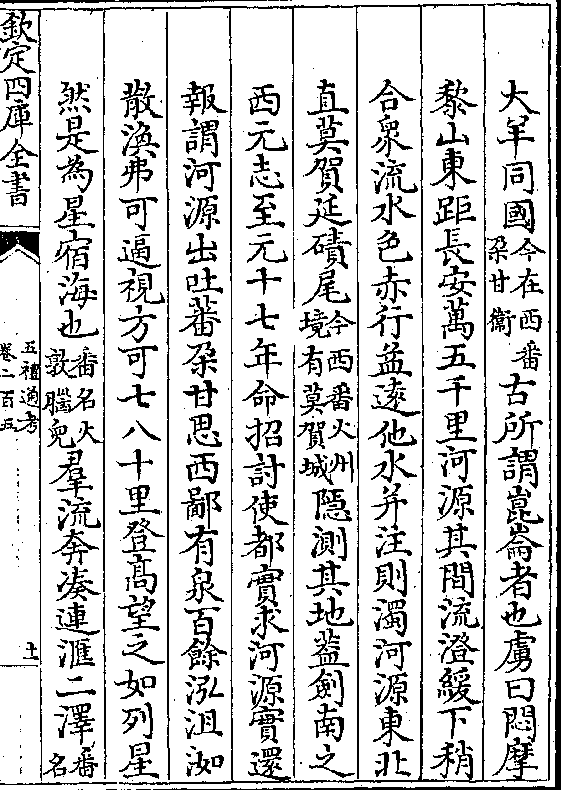 大羊同國今在西番朶甘衛古所謂崑崙者也虜曰悶摩
黎山東距長安萬五千里河源其間流澄緩下稍
合衆流水色赤行益遠他水并注則濁河源東北
直莫賀延磧尾今西番火州境有莫賀城隱測其地蓋劍南之
西元志至元十七年命招討使都實求河源實還
報謂河源出吐蕃朶甘思西鄙有泉百餘泓沮洳
散渙弗可逼視方可七八十里登髙望之如列星
然是為星宿海也番名火敦腦兒羣流奔湊連滙二澤番名
欽定四庫全書
五禮通考
卷二百五
十一